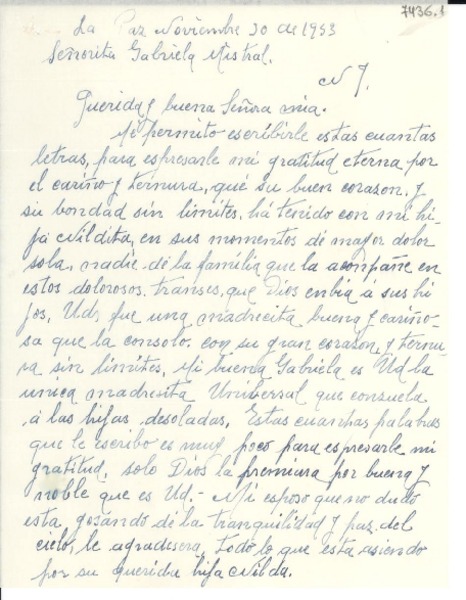 7436.1
La Paz Noviembre 30 de 1953
Señorita Gabriela Mistral.
N Y.
Querida y buena Señora mia.
Me permito escribirle estas cuantas
letras, para espresarle mi gratitud eterna por
el cariño y ternura, qué su buen corazon, y
su bondad sin limites, há tenido con mi hi-
ja Nildita, en sus momentos de mayor dolor
sola, nadie de la familia que la acompañe en
estos dolorosos transes, que Dios enbia á sus hi-
jos, Ud, fue una madrecita buena y cariño-
sa que la consolo, con su gran corazon, y ternu-
ra sin limites, Mi buena Gabriela es Ud la
unica madrecita Unibersal que consuela
á las hijas desoladas, Estas cuantas palabras
que le escribo es muy poco para espresarle mi
gratitud, solo Dios la premiara por buena y
noble que es Ud.- Mi esposo que no dudo
esta, gosando de la tranquilidad y paz del
cielo, le agradesera, todo lo que esta asiendo
por su querida hija Nilda.